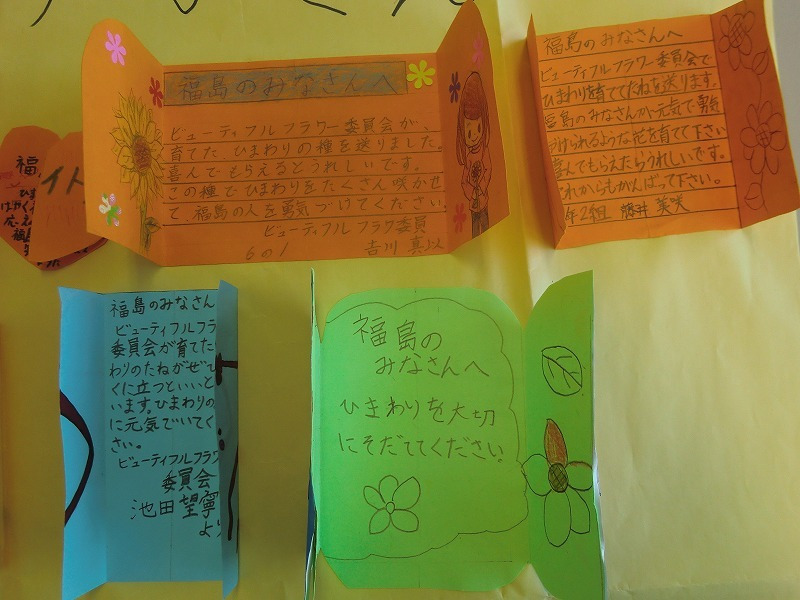 福島のみなさんへ
ビューティフルフラワー委員会が、
育てた、ひまわりの種を送りました。
喜んでもらえるとうれしいです。
この種でひまわりをたくさん咲かせ
て、福島の人を勇気づけてください。
ビューティフルフラワ委員
6の1 吉川
福島のみなさんへ
ビューティフルフラワー委員会で
ひまわりを育ててたねを送ります。
福島のみなさんが元気で勇気
づけられるような花を育てて下さい
喜んでもらえたらうれしいです。
これからもがんばって下さい。
年2組 藤井 美咲
福
イ
福島のみなさん
ビューティフルフラ
委員会が育てた
わりのたねがぜ
くに立つといいと
います。ひまわりの
に元気でいてく
さい。
ビューティフルフラワ
委員会
池田 望寧
より
福島の
みなさんへ
ひまわりを大切
にそだててください